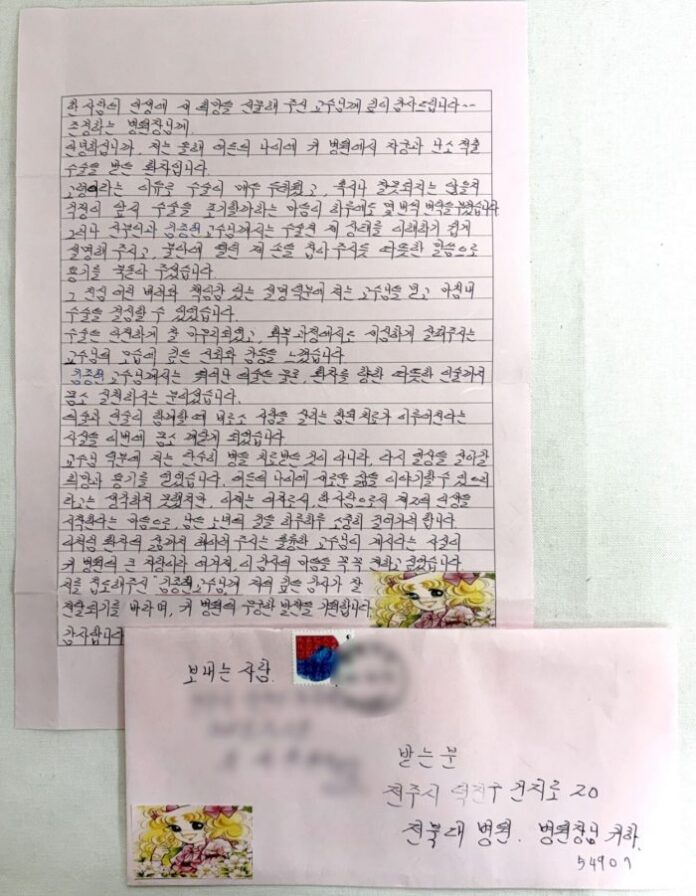 한 사람의 인생에 새 희망을 선물해 주신 교수님께 깊이 감사드립니다...
존경하는 병원장님께.
안녕하십니까. 저는 올해 여든의 나이에 귀 병원에서 자궁과 난소 적출
수술을 받은 환자입니다.
고령이라는 이유로 수술이 매우 두려웠고, 혹시나 잘못되지는 않을지
걱정이 앞서 수술을 포기할까하는 마음이 하루에도 몇번씩
그러나 산부인과 교수님께서는 수술 전 제 상태를 이해하기 쉽게
설명해 주시고, 불안에 떨던 제 손을 잡아 주시듯 따뜻한 말씀으로
용기를 북돋아 주셨습니다.
그 진심 어린 배려와 책임감 있는 설명 덕분에 저는 교수님을 믿고 마침내
수술을 결심할 수 있었습니다.
수술은 안전하게 잘 마무리되었고, 회복 과정에서도 세심하게 살펴주시는
교수님의 모습에 깊은 신뢰와 감동을 느꼈습니다
교수님께서는 뛰어난 의술은 물론, 환자를 향한 따뜻한 인술까지
몸소 실천하시는 분이셨습니다.
의술과 인술이 함께할 때 비로소 사람을 살리는 참된 치료가 이루어진다는
사실을 이번에 몸소 깨닫게 되었습니다
교수님 덕분에 저는 단순히 병을 치료받은 것이 아니라, 다시 일상을 살아갈
희망과 용기를 얻었습니다. 여든의 나이에 새로운 삶을 이야기할 수 있으리
라고는 생각하지 못했지만, 이제는 여자로서, 한 사람으로서 제2의 인생을
시작한다는 마음으로, 남은 노년의 길을 하루하루 소중히 걸어가려 합니다
이처럼 환자의 삶까지 헤아려 주시는 훌륭한 교수님이 계시다는 사실이
귀 병원의 큰 자랑이라 여겨져, 이 감사의 마음을 꼭꼭 전하고 싶었습니다
저를 집도해주신 교수님께 저의 깊은 감사가 잘
전달되기를 바라며, 귀 병원의 무궁한 발전을 기원합니다
감사합니다
보내는 사람
받는 분
전주시 덕진구 건지로 20
전북대 병원. 병원장님 귀하.
54907